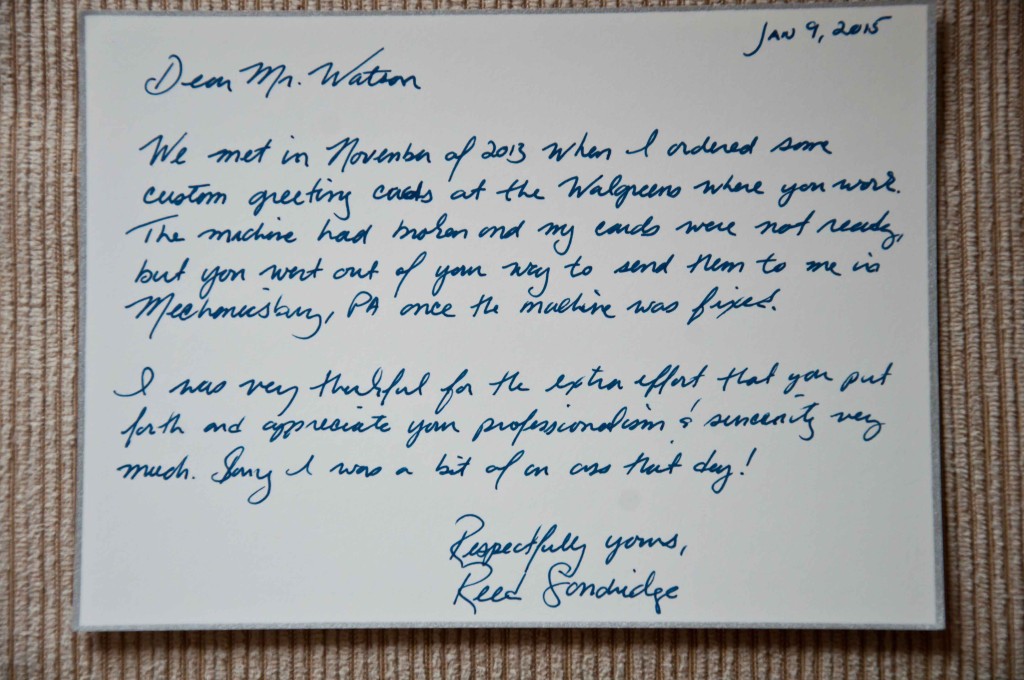 Jan 9, 2015
Dear Mr. Watson
We met in November of 2013 when I ordered some
custom greeting cards at the Walgreens where you work.
The machine had broken and my cards were not ready,
but you went out of your way to send them to me in
Mechanicsburg, PA once the machine was fixed.
I was very thankful for the extra effort that you put
forth and appreciate your professionalism & sincerity very
much. Sorry I was a bit of an ass that day!
Respectfully yours,
Reed Sandridge